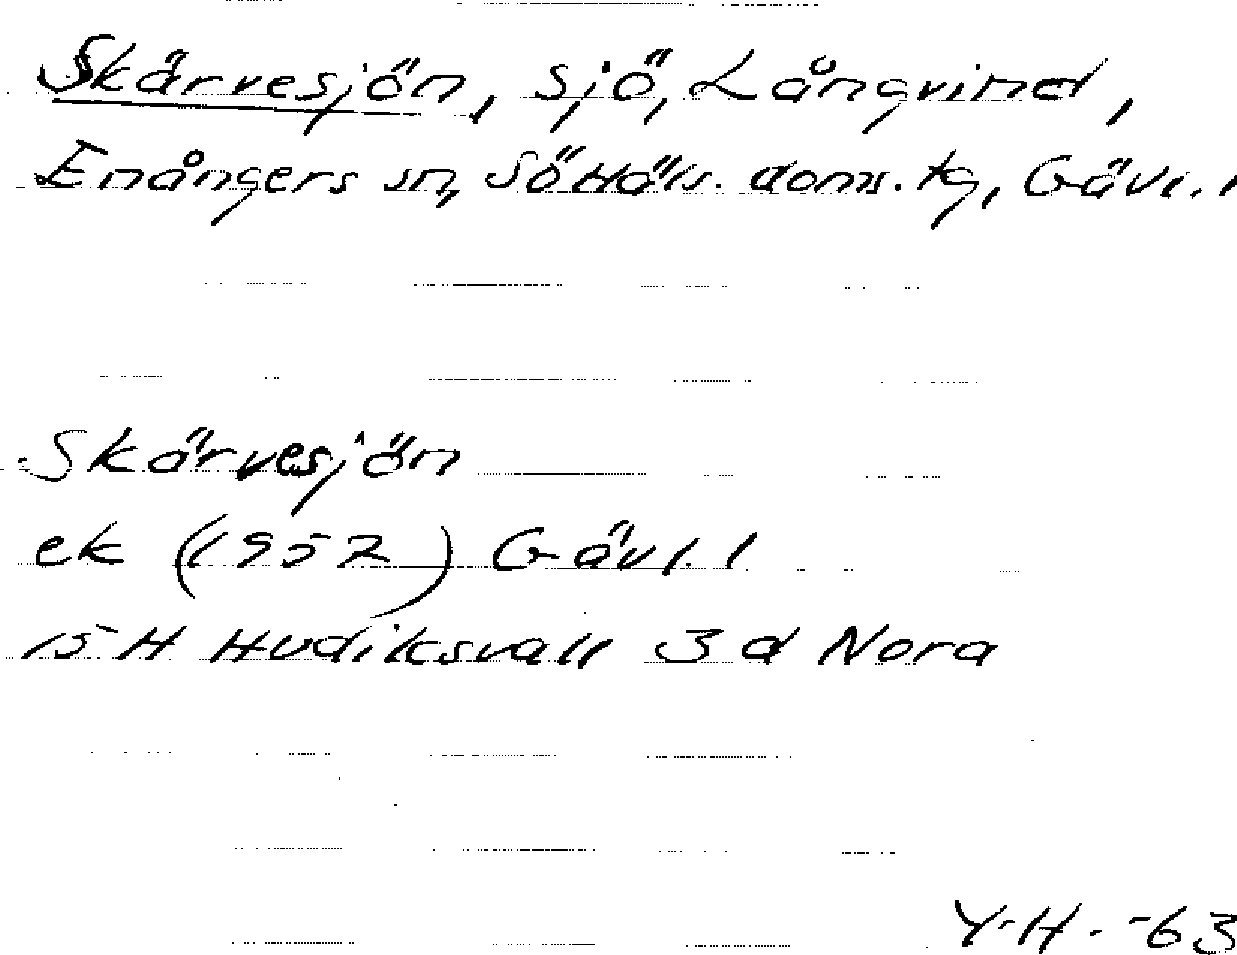 Skärvesjön, sjö, Långvind,
Enångers sn, Sö Häls. doms. tg, Gävl. l
Skärvesjön
ek (1957) Gävl. l
15 H Hudiksvall 3 d Nora
Y.H. -63